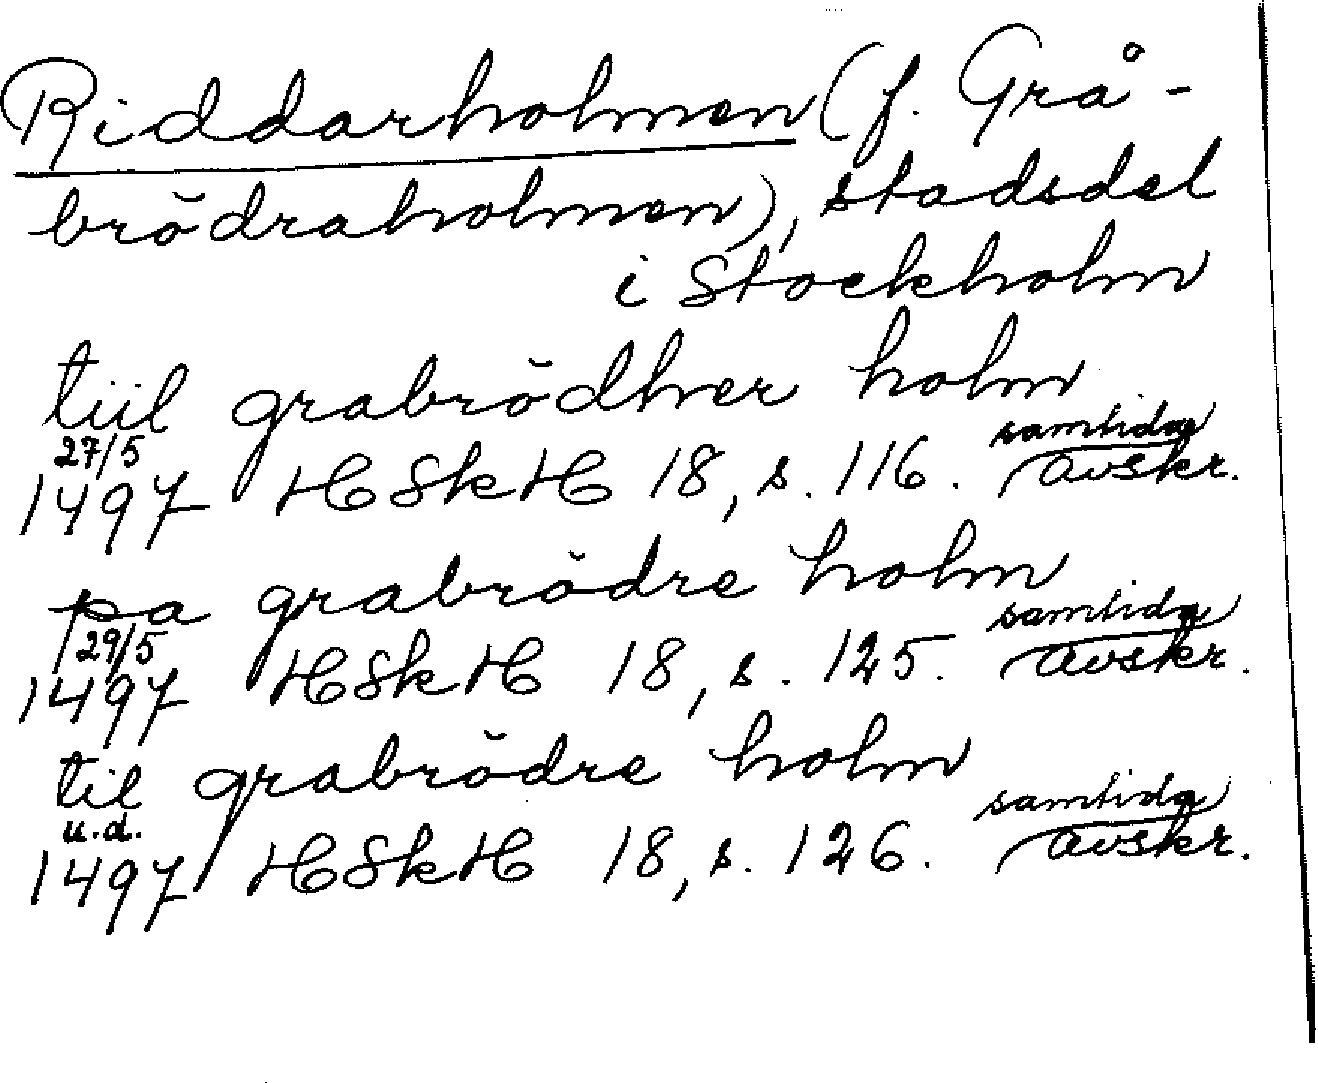 Riddarholmen (f. Grå-
brödraholmen), stadsdel
i Stockholm
tiil grabrödher holm
27/5 samtida
1497 HSkH 18, s. 116. avskr.
pa grabrödre holm
29/5 samtida
1497 HSkH 18, s. 125. avskr.
til grabrödre holm
u.d. samtida
1497 HSkH 18, s. 126. avskr.